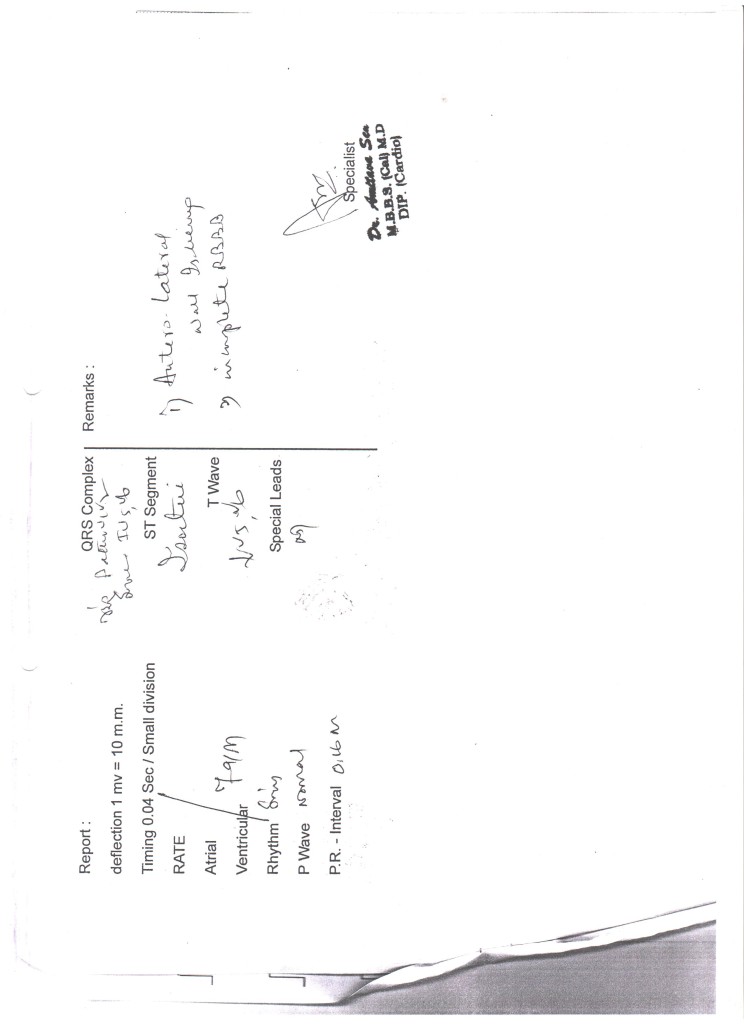 Report :
deflection 1 mv = 10 m.m.
Timing 0.04 Sec / Small division
RATE
Atrial
Ventricular 79/M
Rhythm Sinus
P Wave Normal
P.R. - Interval 0.16 M
QRS Complex
V5, V6
ST Segment
T Wave
V5, V6
Special Leads
Remarks :
1) Antero-lateral
wall Ischemia
2) incomplete RBBB
Specialist
Dr. Amitava Sen
M.B.B.S. (Cal) M.D
DIP. (Cardio)